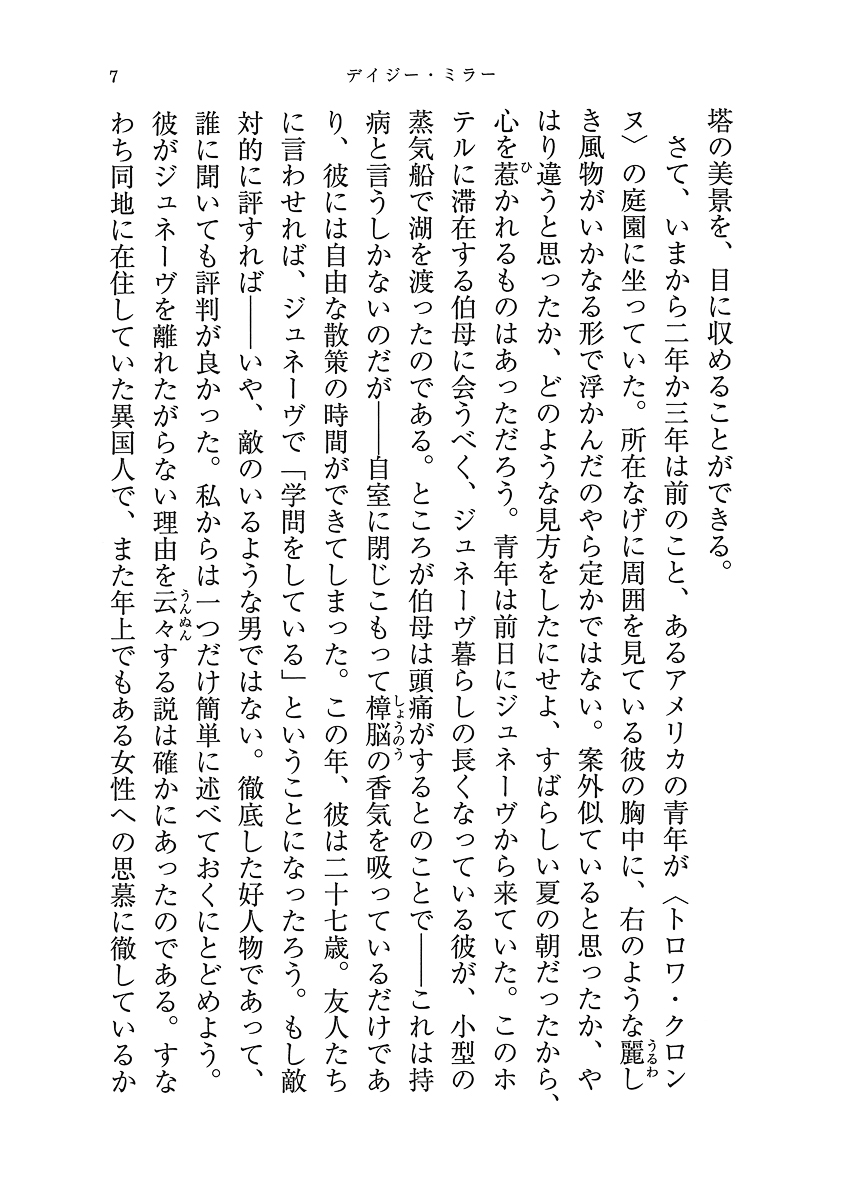 7
デイジー・ミラー
塔の美景を、目に収めることができる。
さて、いまから二年か三年は前のこと、あるアメリカの青年が〈トロワ・クロン
ヌ〉の庭園に坐っていた。所在なげに周囲を見ている彼の胸中に、右のような麗し
うるわ
き風物がいかなる形で浮かんだのやら定かではない。案外似ていると思ったか、や
はり違うと思ったか、どのような見方をしたにせよ、すばらしい夏の朝だったから、
心を惹かれるものはあっただろう。青年は前日にジュネーヴから来ていた。このホ
ひ
テルに滞在する伯母に会うべく、ジュネーヴ暮らしの長くなっている彼が、小型の
蒸気船で湖を渡ったのである。ところが伯母は頭痛がするとのことで――これは持
病と言うしかないのだが――自室に閉じこもって樟脳の香気を吸っているだけであ
しょうのう
り、彼には自由な散策の時間ができてしまった。この年、彼は二十七歳。友人たち
に言わせれば、ジュネーヴで「学問をしている」ということになったろう。もし敵
対的に評すれば――いや、敵のいるような男ではない。徹底した好人物であって、
誰に聞いても評判が良かった。私からは一つだけ簡単に述べておくにとどめよう。
彼がジュネーヴを離れたがらない理由を云々する説は確かにあったのである。すな
うんぬん
わち同地に在住していた異国人で、また年上でもある女性への思慕に徹しているか